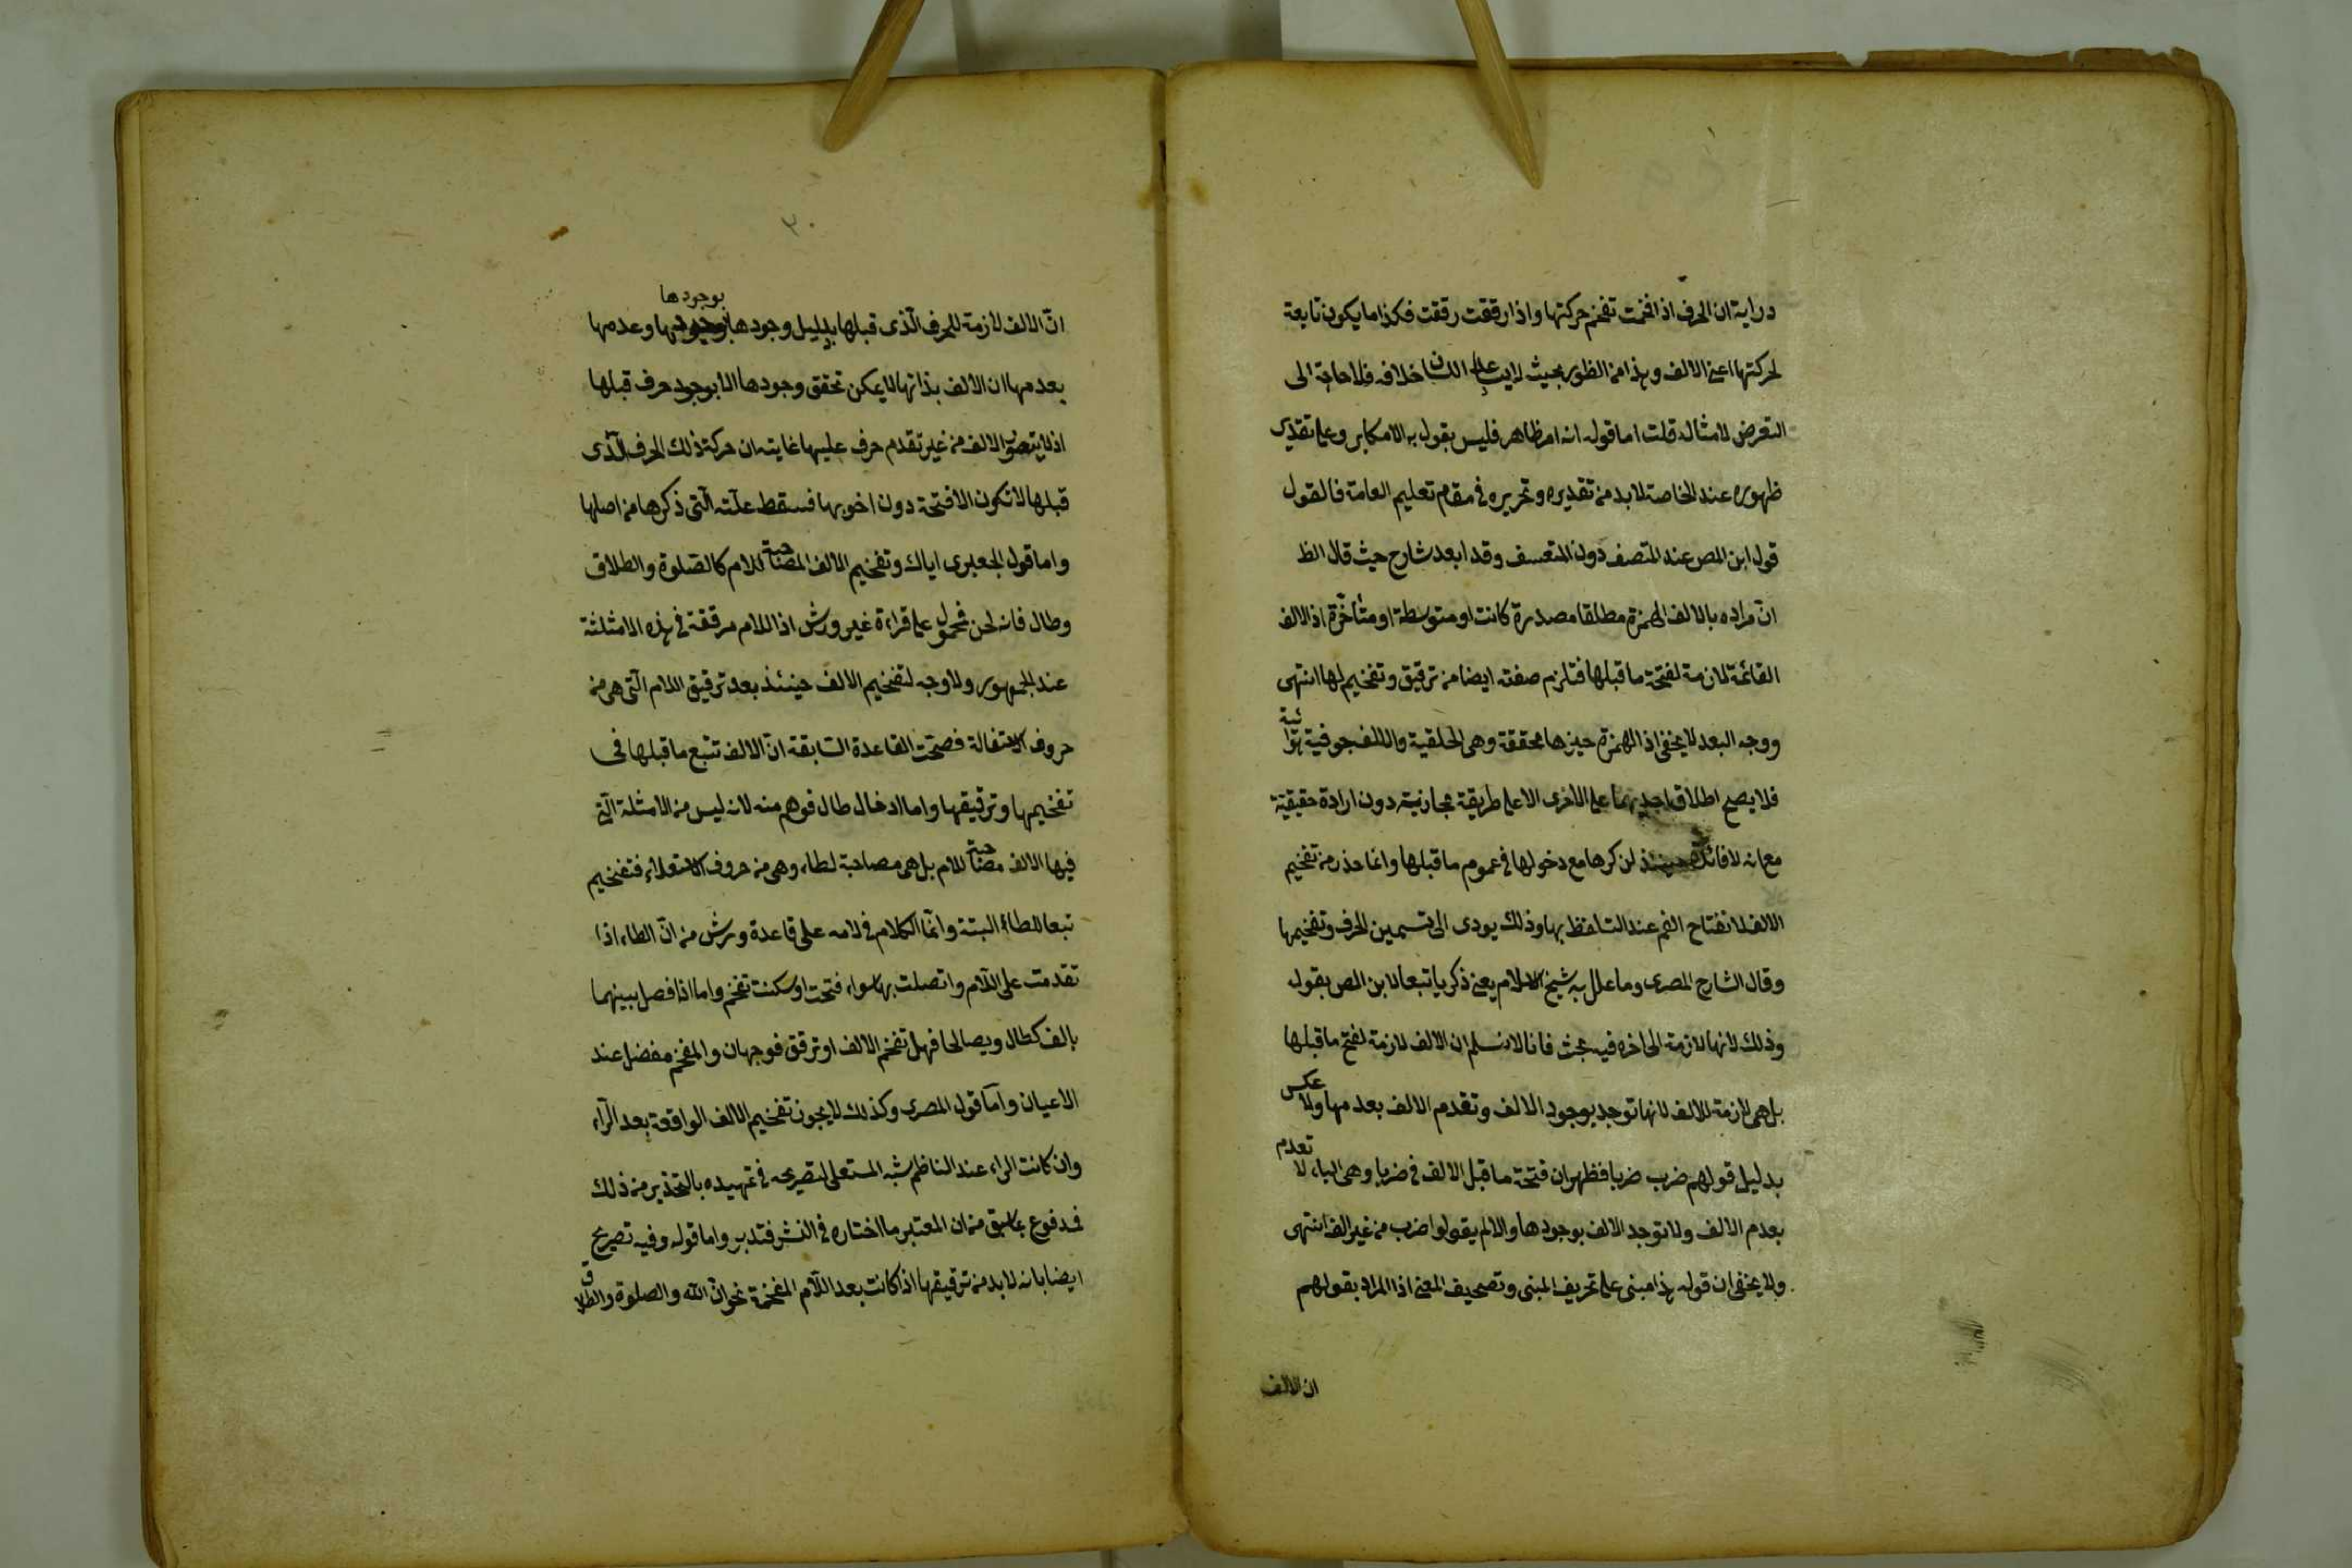 دراية ان الحرف اذا فخمت تفخم حركتها واذا رققت رققت فكذا ما يكون تابعة
لحركتها اعنى الالف وهذا من الظهور بحيث خلافه فلا حاجة الى
التعرض لامثاله قلت اما قوله انه امر ظاهر فليس يقول به الا مكابر وعلى تقدير
ظهوره عند الخاصة لا بد من تقديره وتحريره في مقام تعليم العامة فالقول
قول ابن المص عند المتصف دون المتعسف وقد ابعد شارح حيث قال الظ
انّ مراده بالالف الهمزة مطلقا مصدرة كانت او متوسطة او متأخرة اذ الالف
القائمة لازمة لفتحة ما قبلها فتلزم صفته ايضا من ترقيق وتفخيم لها انتهى
ووجه البعد لا يخفى اذ الهمزة حيزها محققة وهى الحلقية والالف جوفية هوائية
فلا يصح اطلاق احديهما على الاخرى الا على طريقة مجازية دون ارادة حقيقية
مع انه لا فائدة لذكرها مع دخولها في عموم ما قبلها وانما حذر من تفخيم
الالف لانفتاح الفم عند التلفظ بها وذلك يودى الى تسمين الحرف وتفخيمها
وقال الشارح المصرى وما علل به شيخ الاسلام يعنى ذكريا تبعا لابن المص بقوله
وذلك لانها لازمة الى اخره فيه بحث فانا لا نسلم ان الالف لازمة لفتح ما قبلها
بل هى لازمة للالف لانها توجد بوجود الالف وتقدم الالف بعدمها ولا عكس
بدليل قولهم ضرب ضربا فظهر ان فتحة ما قبل الالف في ضربا وهى الباء لا تعدم
بعدم الالف ولا توجد الالف بوجودها والا لم يقولوا ضرب من غير الف انتهى
ولا يخفى ان قوله هذا مبنى على تحريف المبنى وتصحيف المعنى اذ المراد بقولهم
ان الالف
٣٠
انّ الالف لازمة للحرف الّذى قبلها بدليل وجودها بوجودها وعدمها
بعدمها ان الالف بذاتها لا يمكن تحقق وجودها الا بوجود حرف قبلها
اذ لا يتصور الالف من غير تقدم حرف عليها غايته ان حركة ذلك الحرف الّذى
قبلها لا تكون الا فتحة دون اخويها فسقط علّته الّتى ذكرها من اصلها
واما قول الجعبرى اياك وتفخيم الالف المصاحبة للام كالصلوة والطلاق
وطال فانه لحن فمحمول على قراءة غير ورش اذ اللام مرققة في هذه الامثلة
عند الجمهور ولا وجه لتفخيم الالف حينئذ بعد ترقيق اللام الّتى هى من
حروف الاستفالة فصحّت القاعدة السّابقة انّ الالف تتبع ما قبلها فى
تفخيمها وترقيقها واما ادخال طال فوهم منه لانه ليس من الامثلة الّتى
فيها الالف مصاحبة للام بل هى مصاحبة لطاء وهى من حروف الاستعلاء فتفخيم
تبعا للطاء البتة وانّما الكلام في لامه على قاعدة ورش من انّ الطاء اذا
تقدمت على اللّام واتصلت بها سواء فتحت او سكنت تفخم واما اذا فصل بينهما
بالف كطال ويصالحا فهل تفخم الالف او ترقق فوجهان والمفخم مفضل عند
الاعيان وامّا قول المصرى وكذلك لا يجوز تفخيم الالف الواقعة بعد الرّاء
وان كانت الراء عند الناظم شبه المستعلى لتصريحه في تمهيده بالتحذير من ذلك
فمدفوع بما سبق من ان المعتبر ما اختاره في النشر فتدبر واما قوله وفيه تصريح
ايضا بانه لا بد من ترقيقها اذا كانت بعد اللّام المفخمة نحو انّ الله والصلوة والطلاق